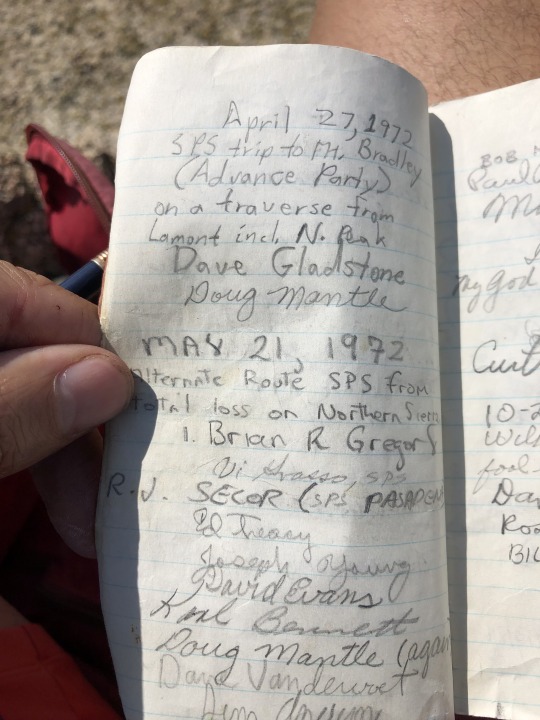 April 27, 1972
SPS trip to Mt. Bradley
(Advance Party)
on a traverse from
Lamont incl. N. Peak
Dave Gladstone
Doug Mantle
MAY 21, 1972
Alternate Route SPS from
total loss on Northern Sierra
1. Brian R Gregory
Vi Grasso, SPS
R.J. SECOR (SPS PASADENA
Ed Treacy
Joseph Young
David Evans
Karl Bennett
Doug Mantle (again
Dave Vanderwet
Jim
BOB
Paul
my god
Curt
10-2